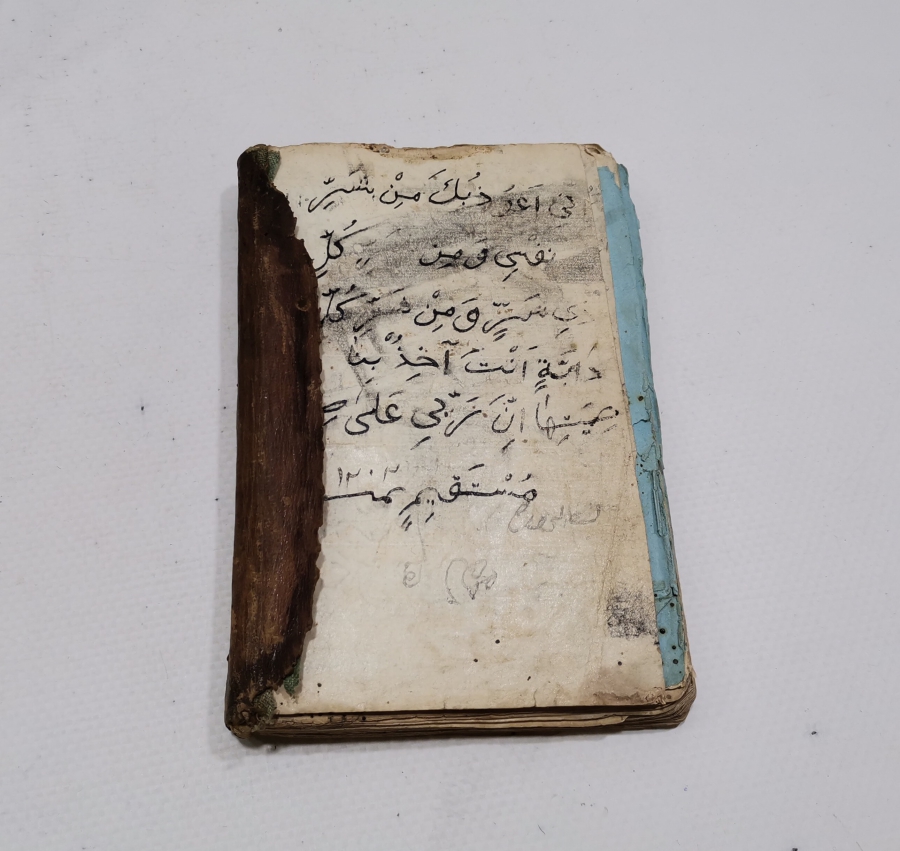 اَنِّي اَعُوْذُبِكَ مِنْ شَرِّ
نفسِي وَ مِن كُلِّ
ذِي شَرٍّ وَ مِنْ شَرِّ كُلِّ
دَابَّةٍ اَنْتَ آخِذٌ بِنَا
صِيَتِهَا اِنَّ رَبِّي عَلٰى صِ
مُسْتَقِيمٍ تمت ١٢٠٢